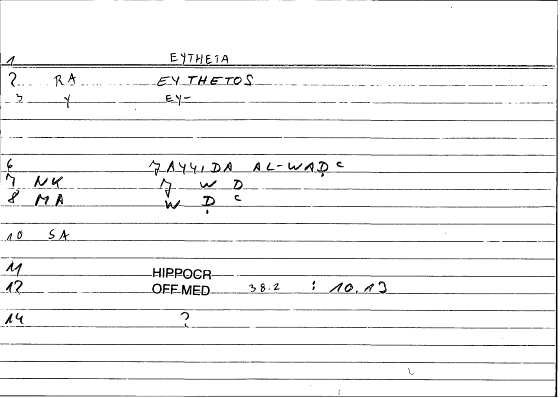 1 EYTHETA
2 RA EYTHETOS
3 Y EY-
6 ǦAYYIDA AL-WAḌ c
7 NK Ǧ W D
8 MA W Ḍ c
10 SA
11 HIPPOCR
12 OFF.MED 38.2 : 10.13
14 ?